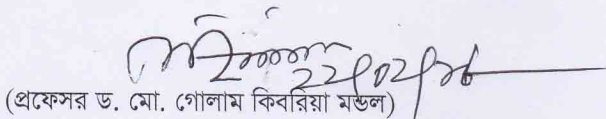 22/02/26
(প্রফেসর ড. মো. গোলাম কিবরিয়া মন্ডল)